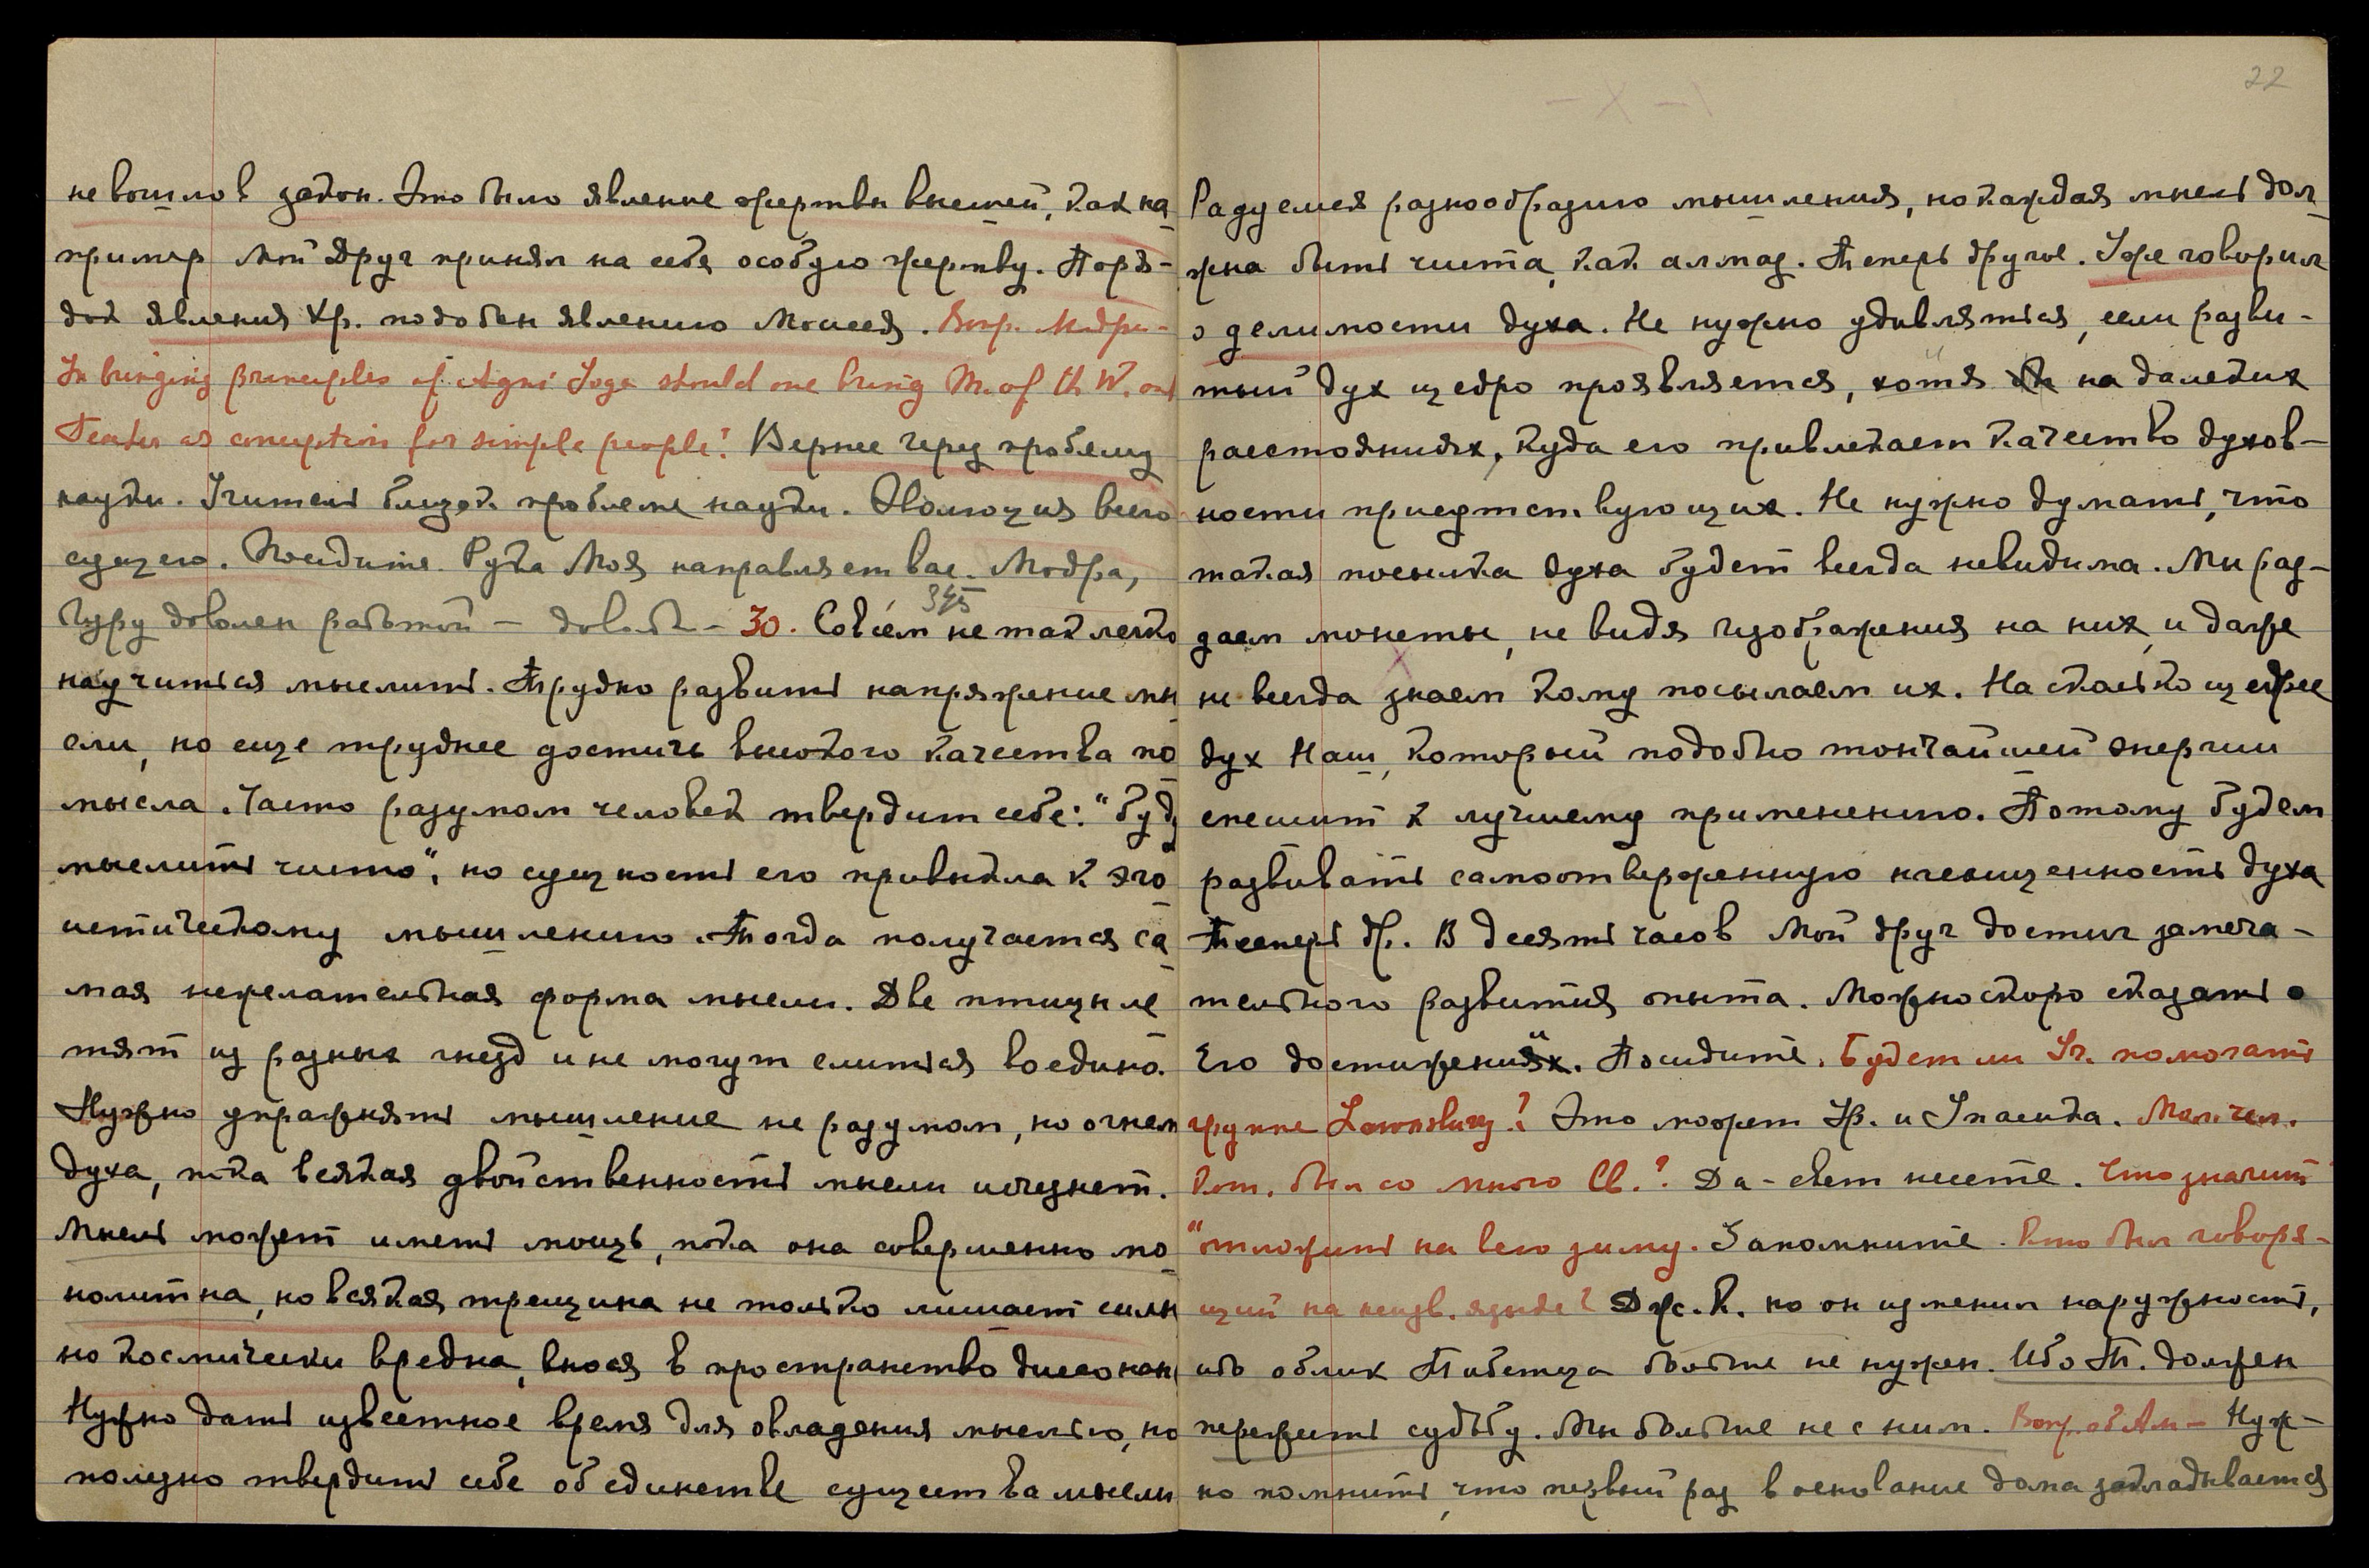 не вошло в закон. Это было явление жертвы высшей, как на
пример Мой Друг принял на себя особую жертву. Поря-
док явления Хр. подобен явлению Моисея. Вопр. Модры-
In bringing principles of Agni Yoga should one bring M. of th W. and
Teacher as conception for simple people? Вернее через проблему
науки. Учитель близок проблеме науки. Эволюция всего
сущего. Посидите. Рука Моя направляет вас. Модра,
Гуру доволен работой - довольно - 30. Совсем не так легко
345
научиться мыслить. Трудно развить напряжение мы
сли, но еще труднее достичь высокого качества по
мысла. Часто разумом человек твердит себе: "буду
мыслить чисто", но сущность его привыкла к эго
истическому мышлению. Тогда получается са
мая нежелательная форма мысли. Две птицы ле
тят из разных гнезд и не могут слиться воедино.
Нужно упражнять мышление не разумом, но огнем
духа, пока всякая двойственность мысли исчезнет.
Мысль может иметь мощь, пока она совершенно мо
нолитна, но всякая трещина не только лишает силы
но космически вредна, внося в пространство диссонанс
Нужно дать известное время для овладения мыслью, но
полезно твердить себе об единстве существа мысли
22
Радуемся разнообразию мышления, но каждая мысль дол
жна быть чиста, как алмаз. Теперь другое. Уже говорил
о делимости духа. Не нужно удивляться, если разви-
тый дух щедро проявляется, хотя на далеких
расстояниях, куда его привлекает качество духов-
ности присутствующих. Не нужно думать, что
такая посылка духа будет всегда невидима. Мы раз-
даем монеты, не видя изображения на них, и даже
не всегда знаем кому посылаем их. На сколько щедрее
дух Наш, который подобно тончайшей энергии
спешит к лучшему применению. Потому будем
развивать самоотверженную насыщенность духа
Теперь др. В десять часов Мой друг достиг замеча-
тельного развития опыта. Можно скоро сказать о
Его достижениях. Посидите. Будет ли Уч. помогать
группе Lownsbury? Это может Ур. и Упасика. Мал. чел.
кот. был со мною Св.? Да - свет несете. Что значит
"отложить на всю зиму. Запомните. Кто был говоря-
щий на неизв. языке? Дж. К. но он изменил наружность,
ибо облик Тибетца больше не нужен. Ибо Т. должен
пережить судьбу. Мы больше не с ним. Вопр. об Ам - Нуж-
но помнить, что первый раз в основание дома закладывается